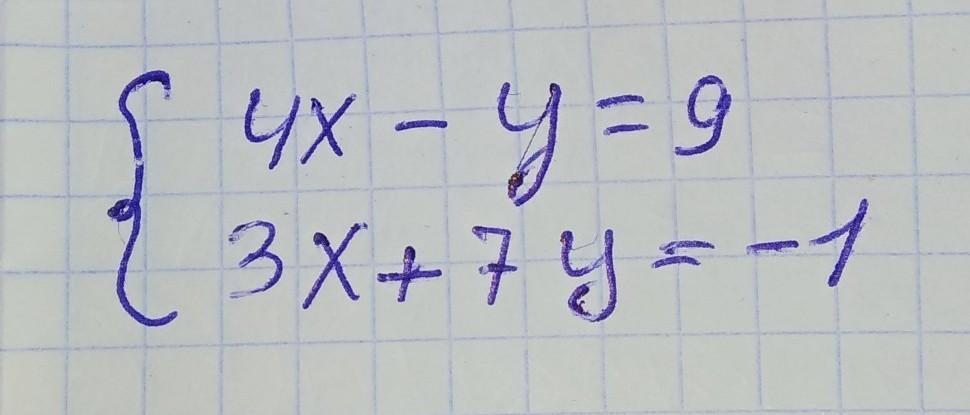 4x - y = 9
3x + 7y = -1